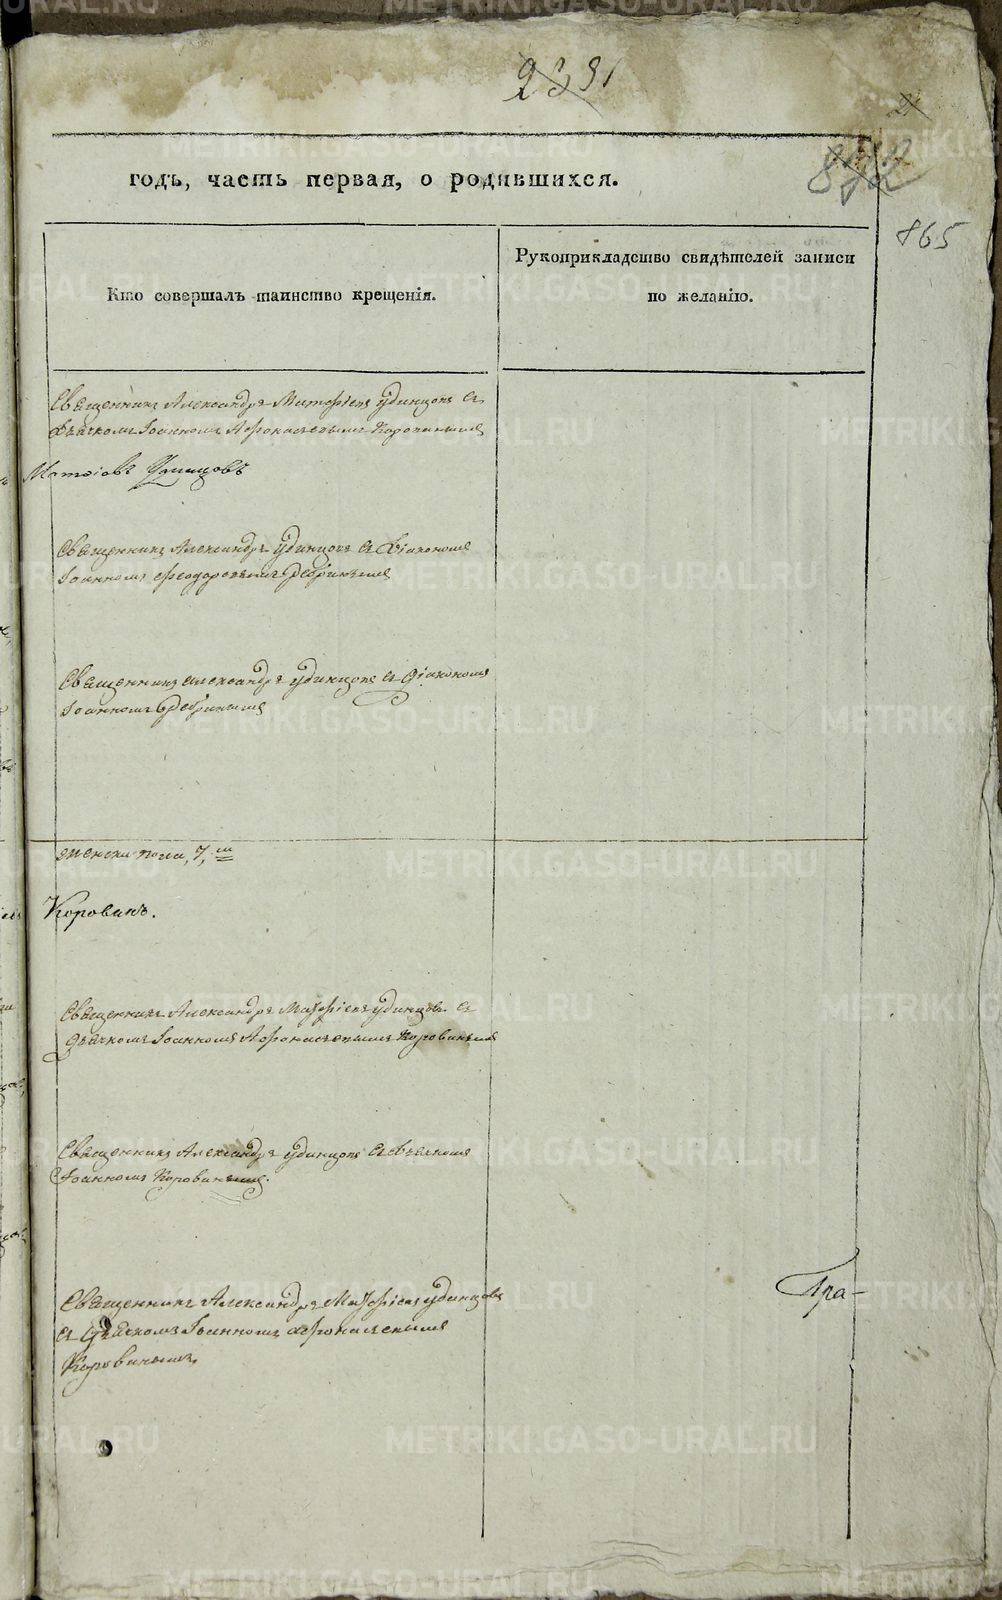 2391
годъ, часть первая, о родившихся.
865
Кто совершалъ таинство крещенія.
Рукоприкладство свидѣтелей записи
по желанію.
Священникъ Александръ Матѳіевъ Удинцовъ съ
Дьячкомъ Іоанномъ Афонасьевымъ Коровинымъ
Матѳіовъ Удинцовъ
Священникъ Александръ Удинцовъ съ Діакономъ
Іоанномъ Феодоровымъ
Священникъ Александръ Удинцовъ съ діакономъ
Іоанномъ
женска пола, 7,
Коровинъ.
Священникъ Александръ Матфіевъ Удинцовъ съ
дьячкомъ Іоанномъ Афонасьевымъ Коровинымъ
Священникъ Александръ Удинцовъ съ дьячкомъ
Іоанномъ Коровинымъ.
Священникъ Александръ Матфіевъ Удинцовъ
съ дьячкомъ Іоанномъ Афонасьевымъ
Коровинымъ.
Гра-
METRIKI.GASO-URAL.RU